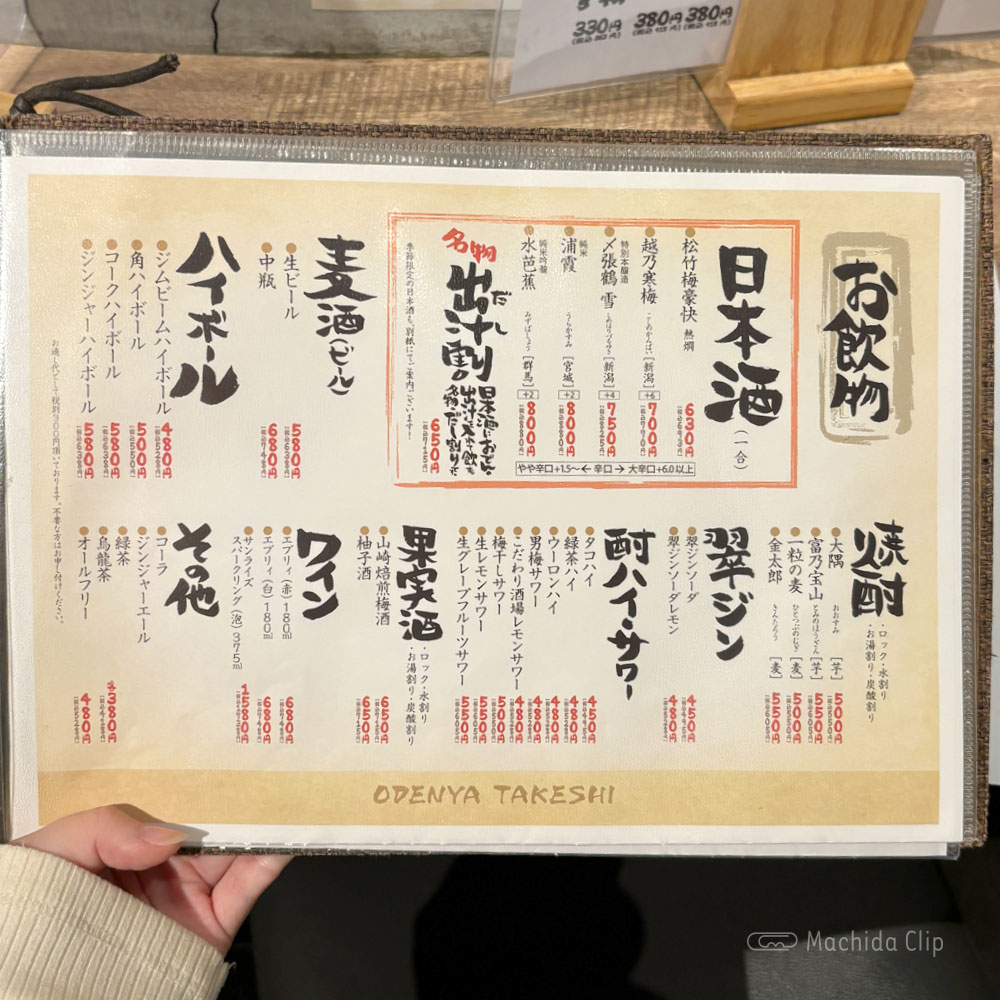 330円
380円
380円
お飲物
日本酒(一合)
松竹梅豪快 熱燗 630円
越乃寒梅 こしのかんばい [新潟] +6 700円
特別本醸造
〆張鶴 雪 しめはりつるゆき [新潟] +4 750円
純米
浦霞 うらかすみ [宮城] +2 800円
純米吟醸
水芭蕉 みずばしょう [群馬] +2 800円
やや辛口+1.5~←辛口→大辛口+6.0以上
名物
出汁割 だし
日本酒におでん
出汁を入れて飲む
名物"だし割り"です
650円
季節限定の日本酒も、別紙にてご案内ございます!
麦酒(ビール)
生ビール 580円
中瓶 680円
ハイボール
ジムビームハイボール 480円
角ハイボール 500円
コークハイボール 580円
ジンジャーハイボール 580円
お通し代として税別300円頂いております。不要な方はお申し付けください。
焼酎
・ロック・水割り
・お湯割り・炭酸割り
大隅 おおすみ [芋] 500円
富乃宝山 とみのほうざん [芋] 550円
一粒の麦 ひとつぶのむぎ [麦] 550円
金太郎 きんたろう [麦] 550円
翠ジン
翠ジンソーダ 450円
翠ジンソーダレモン 480円
酎ハイ・サワー
タコハイ 450円
緑茶ハイ 480円
ウーロンハイ 480円
男梅サワー 480円
こだわり酒場レモンサワー 480円
梅干しサワー 500円
生レモンサワー 550円
生グレープフルーツサワー 550円
果実酒
・ロック・水割り
・お湯割り・炭酸割り
山崎焙煎梅酒 650円
柚子酒 650円
ワイン
エブリィ(赤)180ml 680円
エブリィ(白)180ml 680円
サンライズ
スパークリング(泡)375ml 1580円
その他
コーラ
ジンジャーエール
緑茶
烏龍茶 各380円
オールフリー 480円
ODENYA TAKESHI
Machida Clip